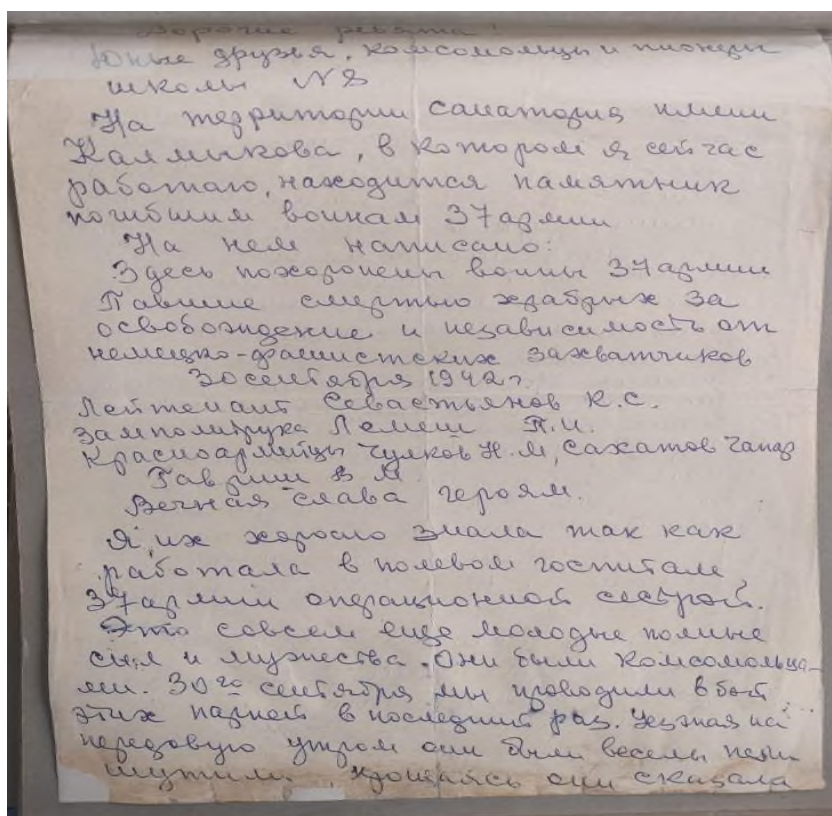 Дорогие ребята!
Юные друзья, комсомольцы и пионеры
школы №8
На территории санатория имени
Калмыкова, в котором я сейчас
работаю, находится памятник
погибшим воинам 37 армии
На нем написано:
Здесь похоронены воины 37 армии
Павшие смертью храбрых за
освобождение и независимость от
немецко-фашистских захватчиков
30 сентября 1942 г.
Лейтенант Севастьянов К.С.
Замполитрука Лемеш П.И.
Красноармейцы Чулков Н.М, Сахатов Чапаз
Гавриш В М
Вечная слава героям.
Я их хорошо знала так как
работала в полевом госпитале
37 армии операционной сестрой.
Это совсем еще молодые полные
сил и мужества. Они были комсомольца-
ми. 30го сентября мы проводили в бой
этих парней в последний раз. Уезжая на
передовую утром они были веселы пели
шутили прощаясь они сказала